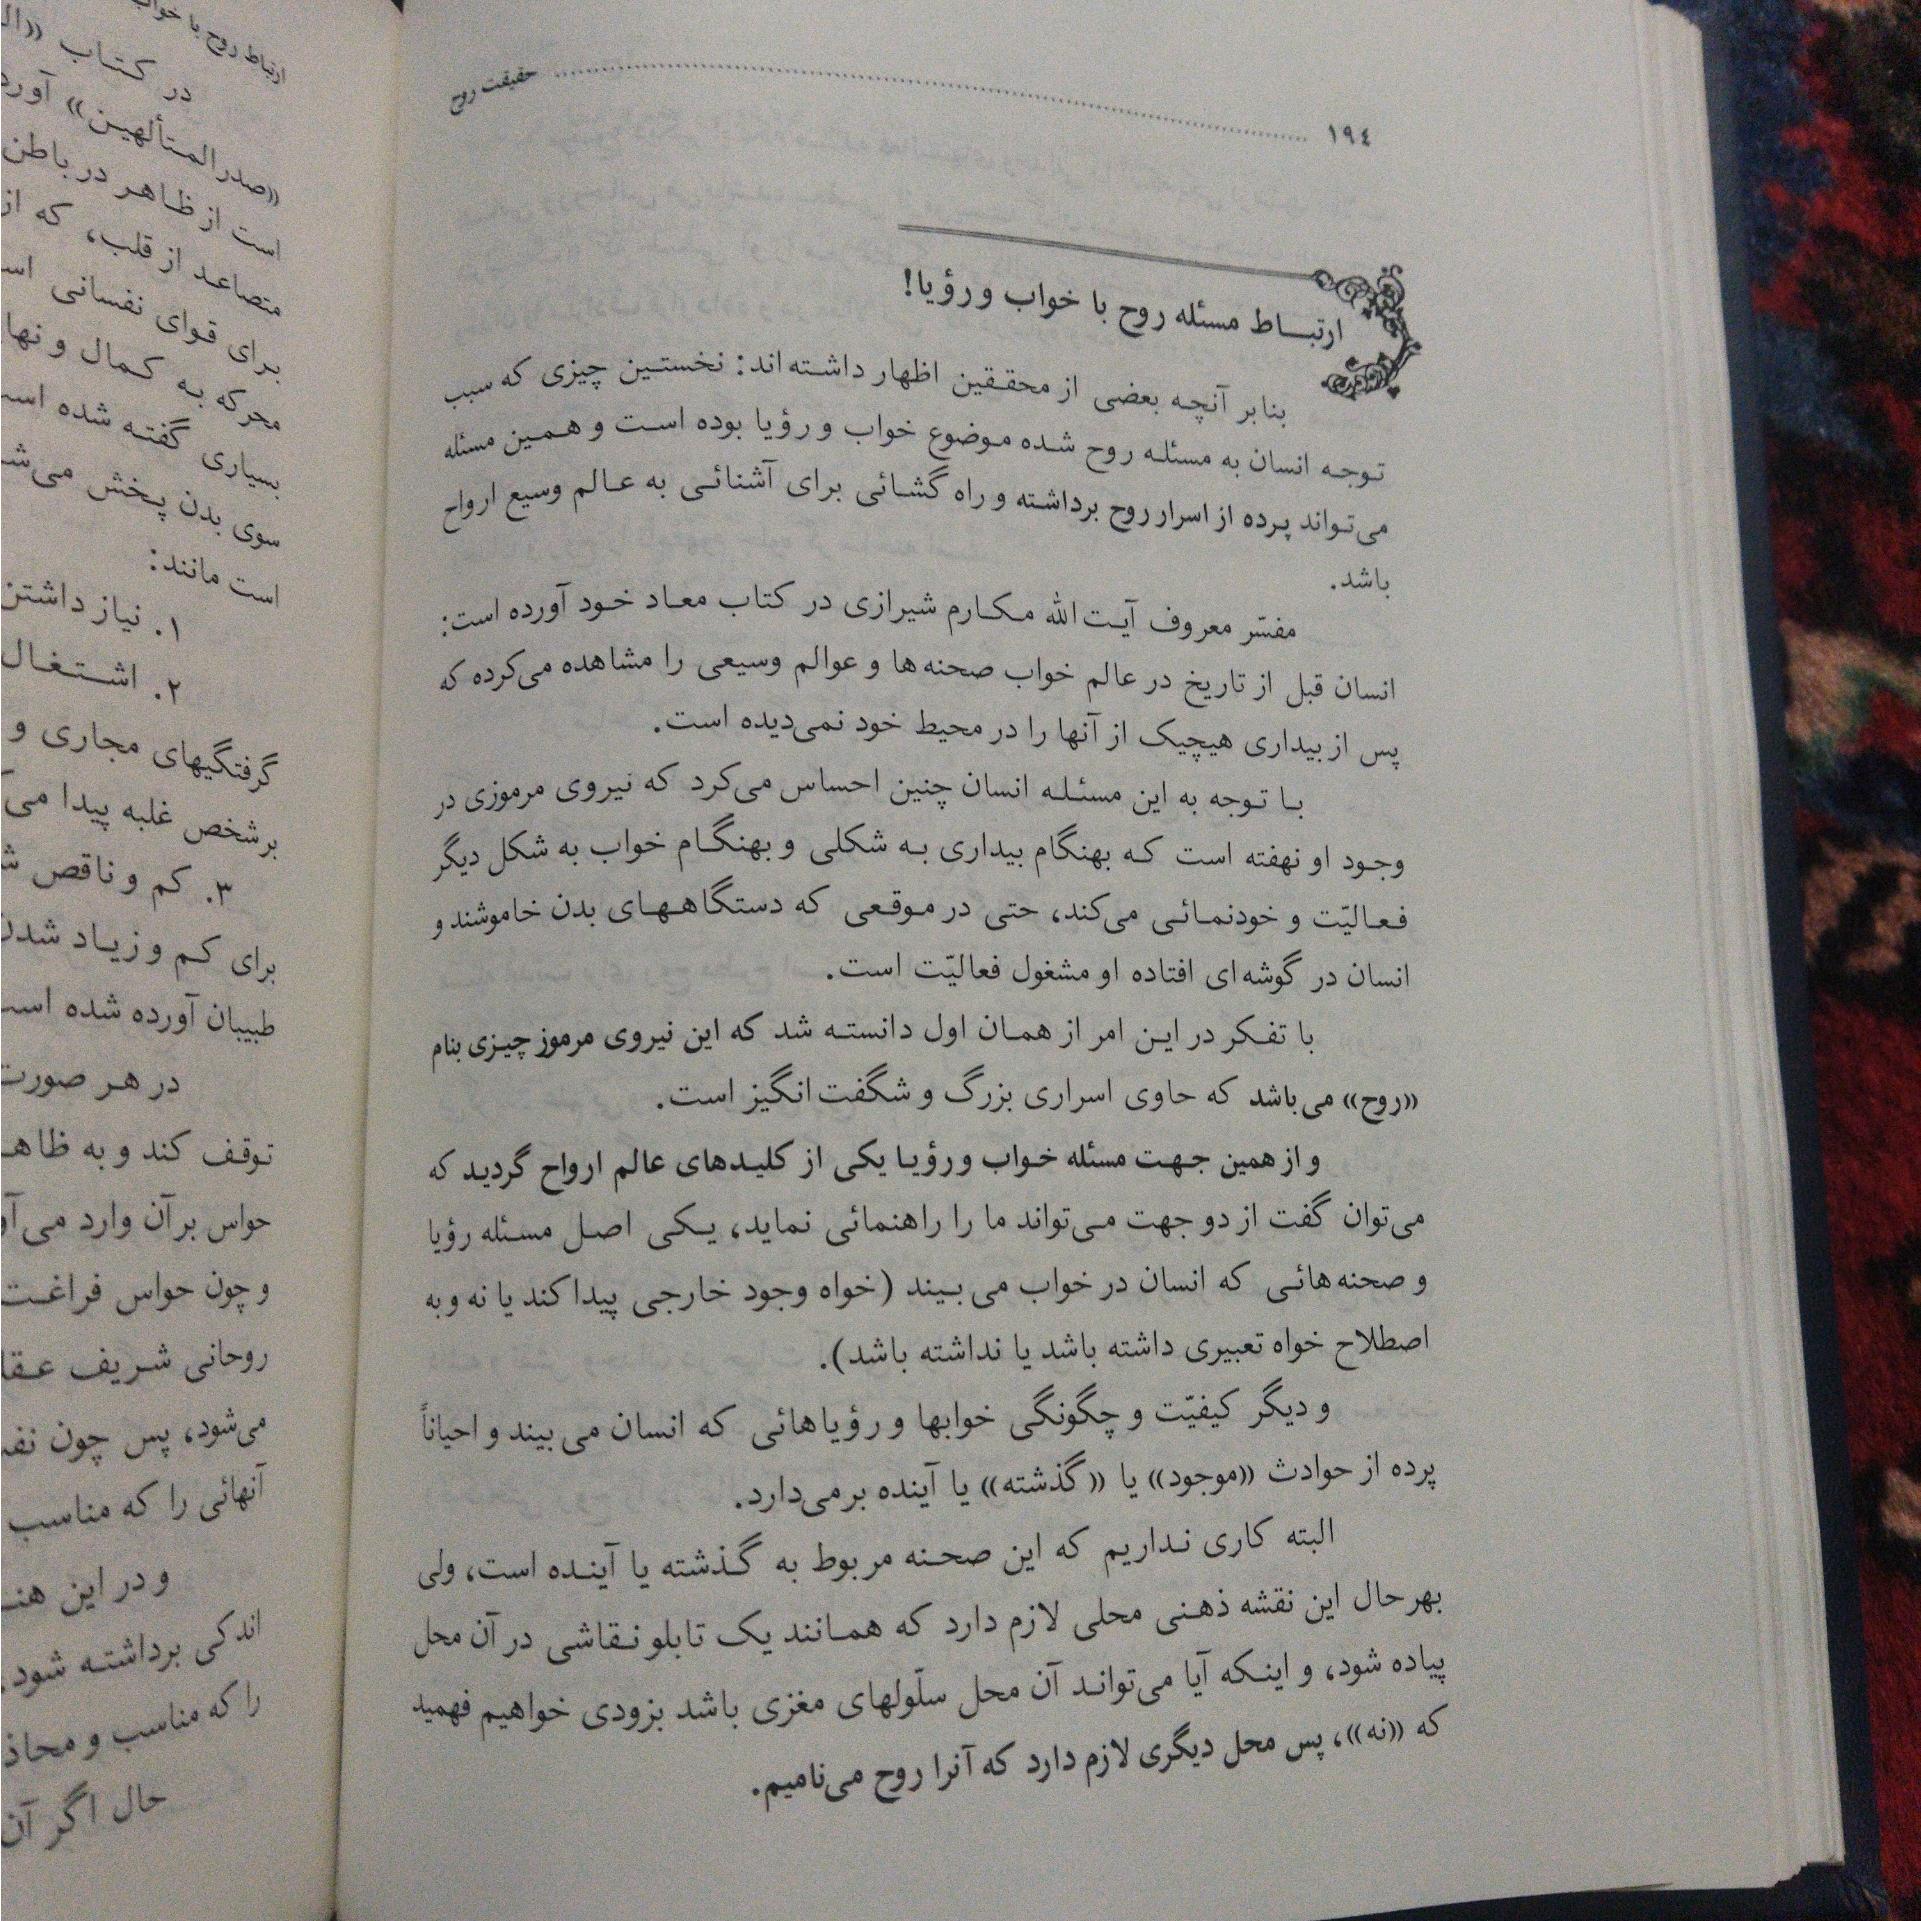 ۱۹٤ حقیقت روح
ارتباط مسئله روح با خواب و رؤیا!
بنابر آنچه بعضی از محققین اظهار داشته‌اند: نخستین چیزی که سبب
توجه انسان به مسئله روح شده موضوع خواب و رؤیا بوده است و همین مسئله
می‌تواند پرده از اسرار روح برداشته و راه گشائی برای آشنائی به عالم وسیع ارواح
باشد.
مفسّر معروف آیت‌الله مکارم شیرازی در کتاب معاد خود آورده است:
انسان قبل از تاریخ در عالم خواب صحنه‌ها و عوالم وسیعی را مشاهده می‌کرده که
پس از بیداری هیچیک از آنها را در محیط خود نمی‌دیده است.
با توجه به این مسئله انسان چنین احساس می‌کرد که نیروی مرموزی در
وجود او نهفته است که بهنگام بیداری به شکلی و بهنگام خواب به شکل دیگر
فعالیّت و خودنمائی می‌کند، حتی در موقعی که دستگاههای بدن خاموشند و
انسان در گوشه‌ای افتاده او مشغول فعالیّت است.
با تفکر در این امر از همان اول دانسته شد که این نیروی مرموز چیزی بنام
«روح» می‌باشد که حاوی اسراری بزرگ و شگفت‌انگیز است.
و از همین جهت مسئله خواب و رؤیا یکی از کلیدهای عالم ارواح گردید که
می‌توان گفت از دو جهت می‌تواند ما را راهنمائی نماید، یکی اصل مسئله رؤیا
و صحنه‌هائی که انسان در خواب می‌بیند (خواه وجود خارجی پیدا کند یا نه و به
اصطلاح خواه تعبیری داشته باشد یا نداشته باشد).
و دیگر کیفیّت و چگونگی خوابها و رؤیاهائی که انسان می‌بیند و احیاناً
پرده از حوادث «موجود» یا «گذشته» یا آینده برمی‌دارد.
البته کاری نداریم که این صحنه مربوط به گذشته یا آینده است، ولی
بهرحال این نقشه ذهنی محلی لازم دارد که همانند یک تابلو نقاشی در آن محل
پیاده شود، و اینکه آیا می‌تواند آن محل سلّولهای مغزی باشد بزودی خواهیم فهمید
که «نه»، پس محل دیگری لازم دارد که آنرا روح می‌نامیم.
ارتباط روح با خواب
در کتاب
«صدرالمتألهین»
است از ظاهر در باطن
متصاعد از قلب، که از
برای قوای نفسانی
محرکه به کمال و
بسیاری گفته شده
سوی بدن پخش
است مانند:
۱. نیاز
۲. اشتغال
گرفتگیهای مجاری و
بر شخص غلبه پیدا
۳. کم و ناقص
برای کم و زیاد
طبیبان آورده شده
در هر صورت
توقف کند و به
حواس بر آن وارد
و چون حواس
روحانی شریف
می‌شود، پس چون
آنهائی را که مناسب
و در این
اندکی برداشته شود
را که مناسب و
حال اگر